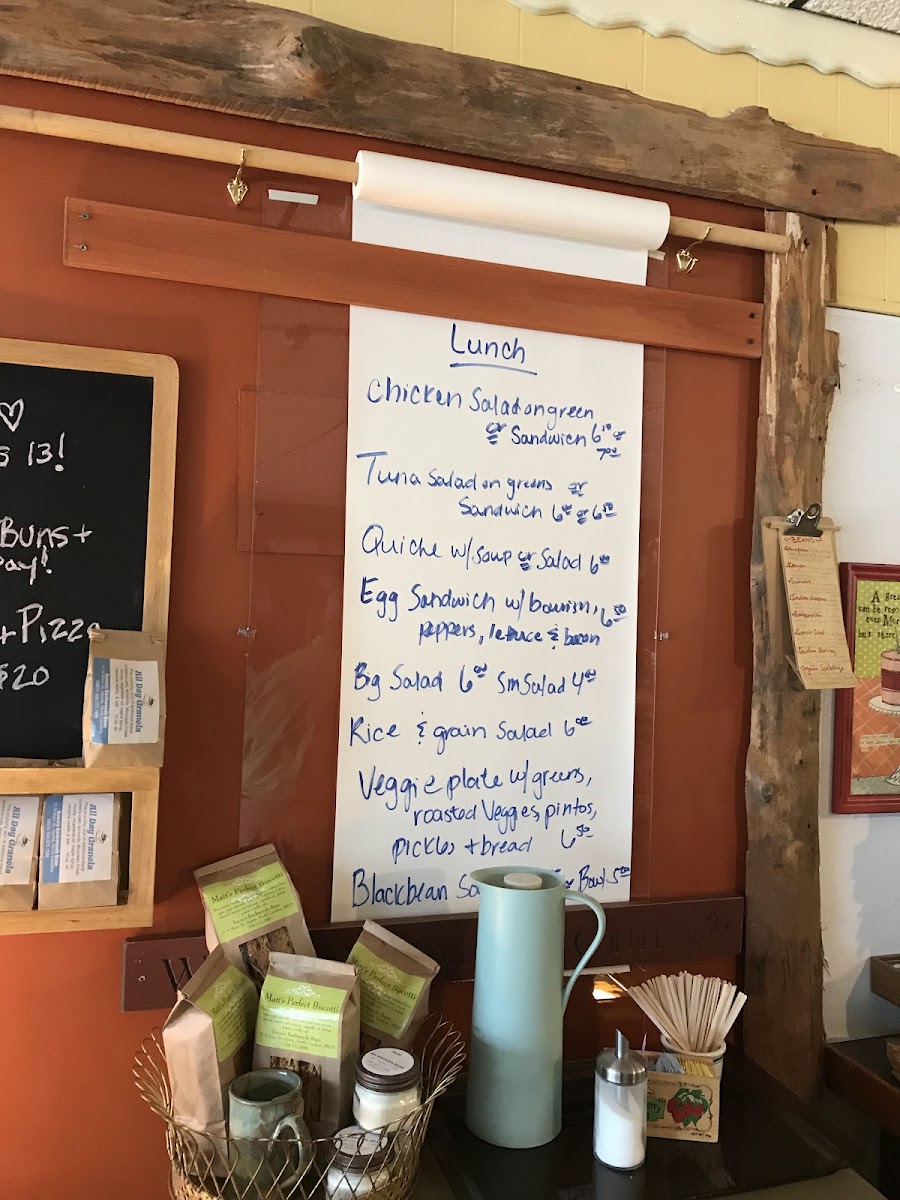 Lunch
Chicken Salad on green
or Sandwich 6 50 or
7 00
Tuna Salad on greens or
Sandwich 6 00 or 6 50
Quiche w/ soup or Salad 6 00
Egg Sandwich w/ boursin, 6 50
peppers, lettuce & bacon
Bg Salad 6 00 Sm Salad 4 00
Rice & grain Salad 6 00
Veggie plate w/ greens,
roasted Veggies, pintos,
pickles + bread 6 50
Blackbean Bowl 5 00
♡
s 13!
Buns +
ay!
+ Pizza
$20
All Day Granola
All Day Granola
All Day Granola
Matt's Perfect Biscotti
Matt's Perfect Biscotti
Matt's Perfect Biscotti
Matt's Perfect Biscotti
BEANS
A Grea
can be rea
even Mor
but there